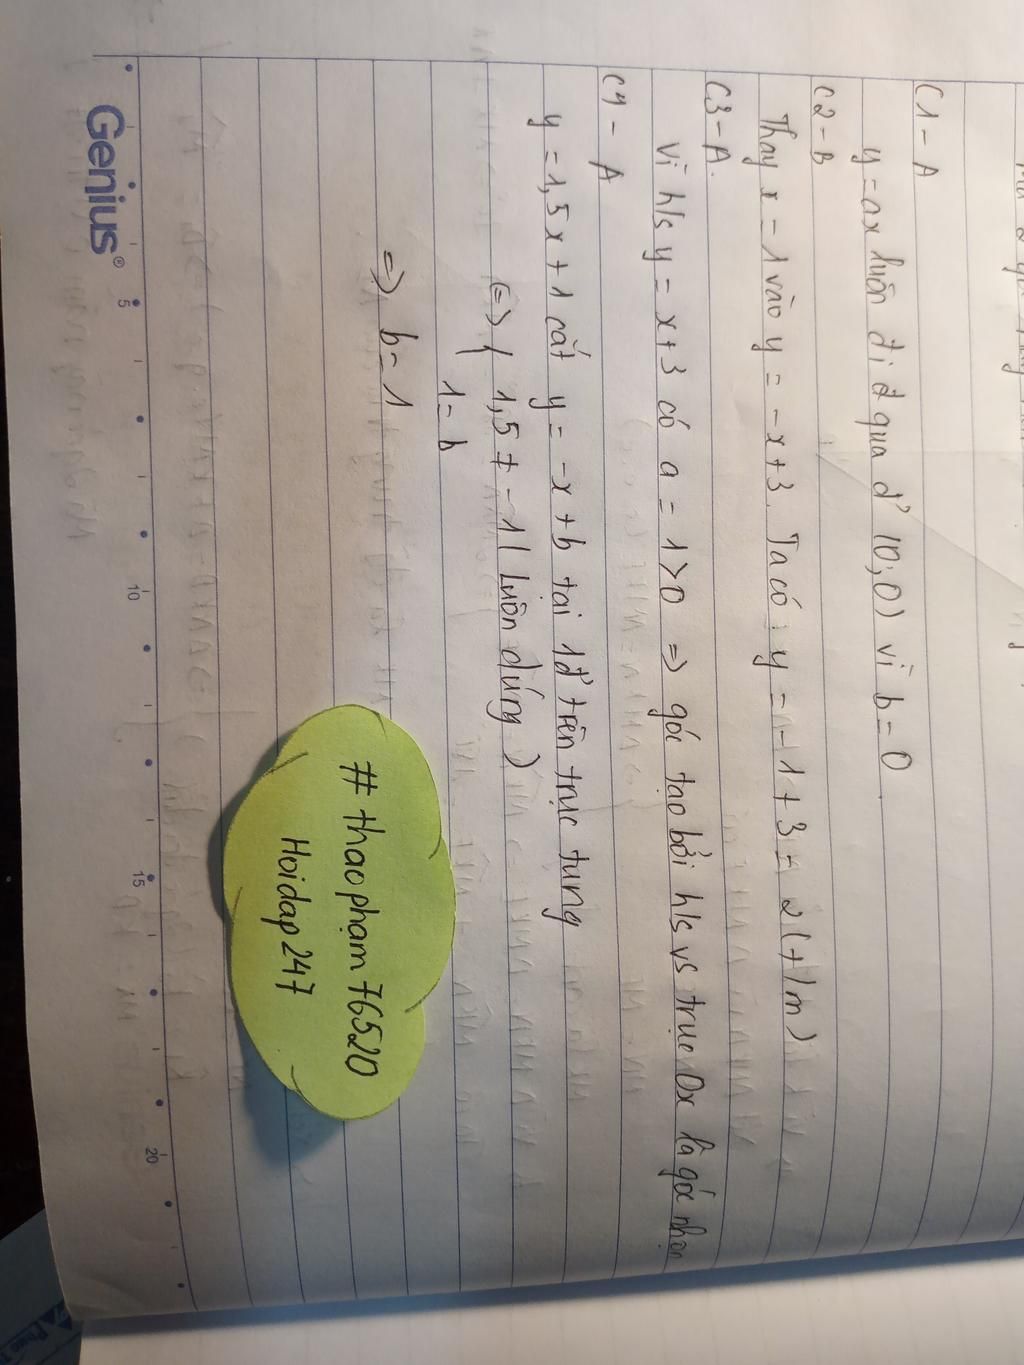 C1 - A
y = ax luôn đi đ qua đ' (0;0) vì b = 0
C2 - B
Thay x = 1 vào y = -x+3. Ta có: y = -1+3 = 2 (t/m)
C3 - A.
Vì h/s y = x+3 có a = 1>0 => góc tạo bởi h/s vs trục Ox là góc nhọn
C4 - A
y = 1,5x+1 cắt y = -x+b tại 1đ' trên trục tung
<=> { 1,5 ≠ -1 (Luôn đúng)
1 = b
=> b = 1
# thaophạm76520
Hoidap247
Genius®
5 10 15 20